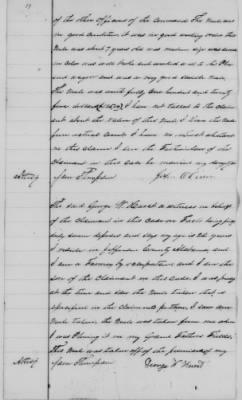 19
of the other officers of the Command The Mule was
in good condition it was in good working order this
Mule was about 7 years old was medium size was brown
in color was well broke and worked well to the Plow
and wagon and was a very good saddle Mule.
The Mule was worth fully One hundred and twenty
five dollars I have not talked to the Claimant
about the value of this Mule I know the Mule
from actual I have no interest whatever
in this Claim I am the of the
Claimant in this Case he married my
Attest
Sam Thompson John
The said George W Hurst a witness in behalf
of the Claimant in this Case on being
duly sworn deposes and says my age is 24 years
I reside in Jefferson County Alabama and
I am a Farmer by occupation and I am the
son of the Claimant in this Case. I was present
at the time and saw the Mule taken that is
specified in the Claimants petition, I saw one
Mule taken the Mule was taken from me when
I was Plowing it in my Grand Fathers Field.
This Mule was taken off of the premises of my
Attest
Sam Thompson George W Hurst